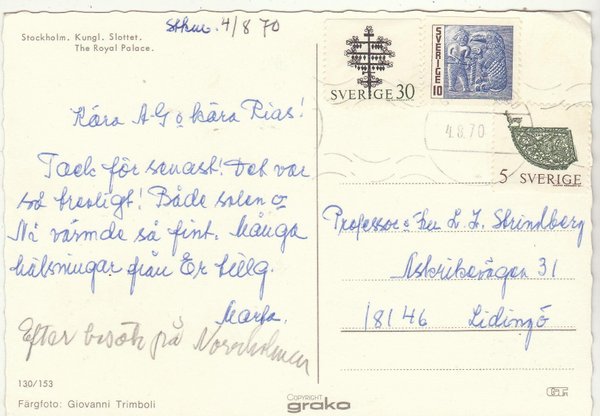 Sthm. 4/8 70
Stockholm. Kungl. Slottet.
The Royal Palace.
SVERIGE 30
SVERIGE 10
4.8.70
5 SVERIGE
Kära A-G o kära Pias!
Tack för senast! Det var
så trevligt! Både solen o
Ni värmde så fint. Många
hälsningar från Er tillg.
Marta.
Efter besök på Norrholmen
Professor o Fru L. I. Strindberg
Askrikevägen 31
18146 Lidingö
130/153
Färgfoto: Giovanni Trimboli
COPYRIGHT
grako